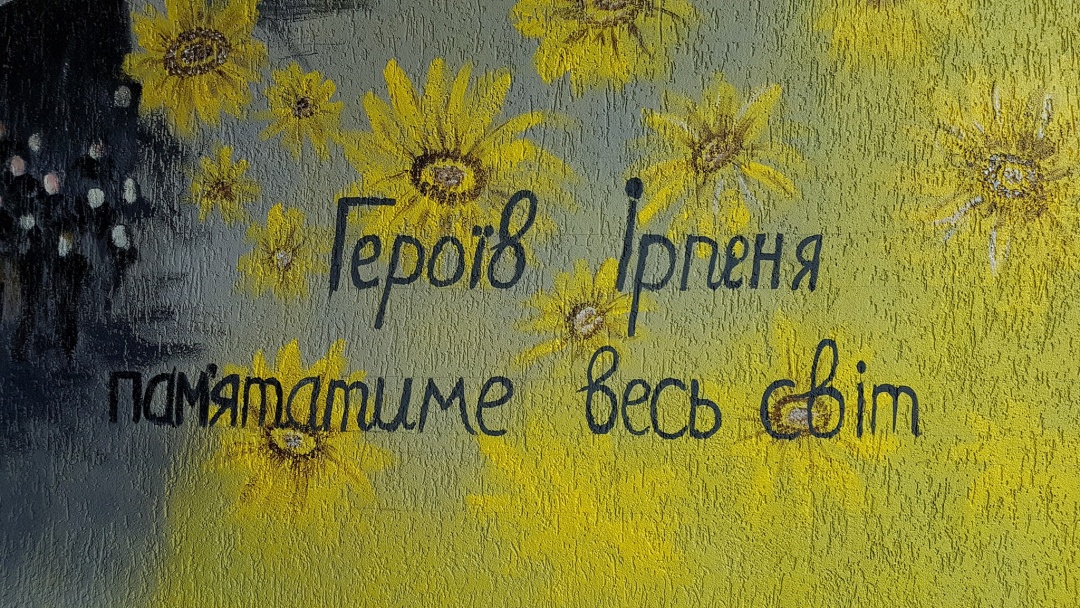 Героїв Ірпеня
пам'ятатиме весь світ